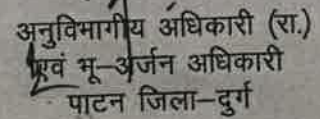 अनुविभागीय अधिकारी (रा.)
एवं भू-अर्जन अधिकारी
पाटन जिला-दुर्ग